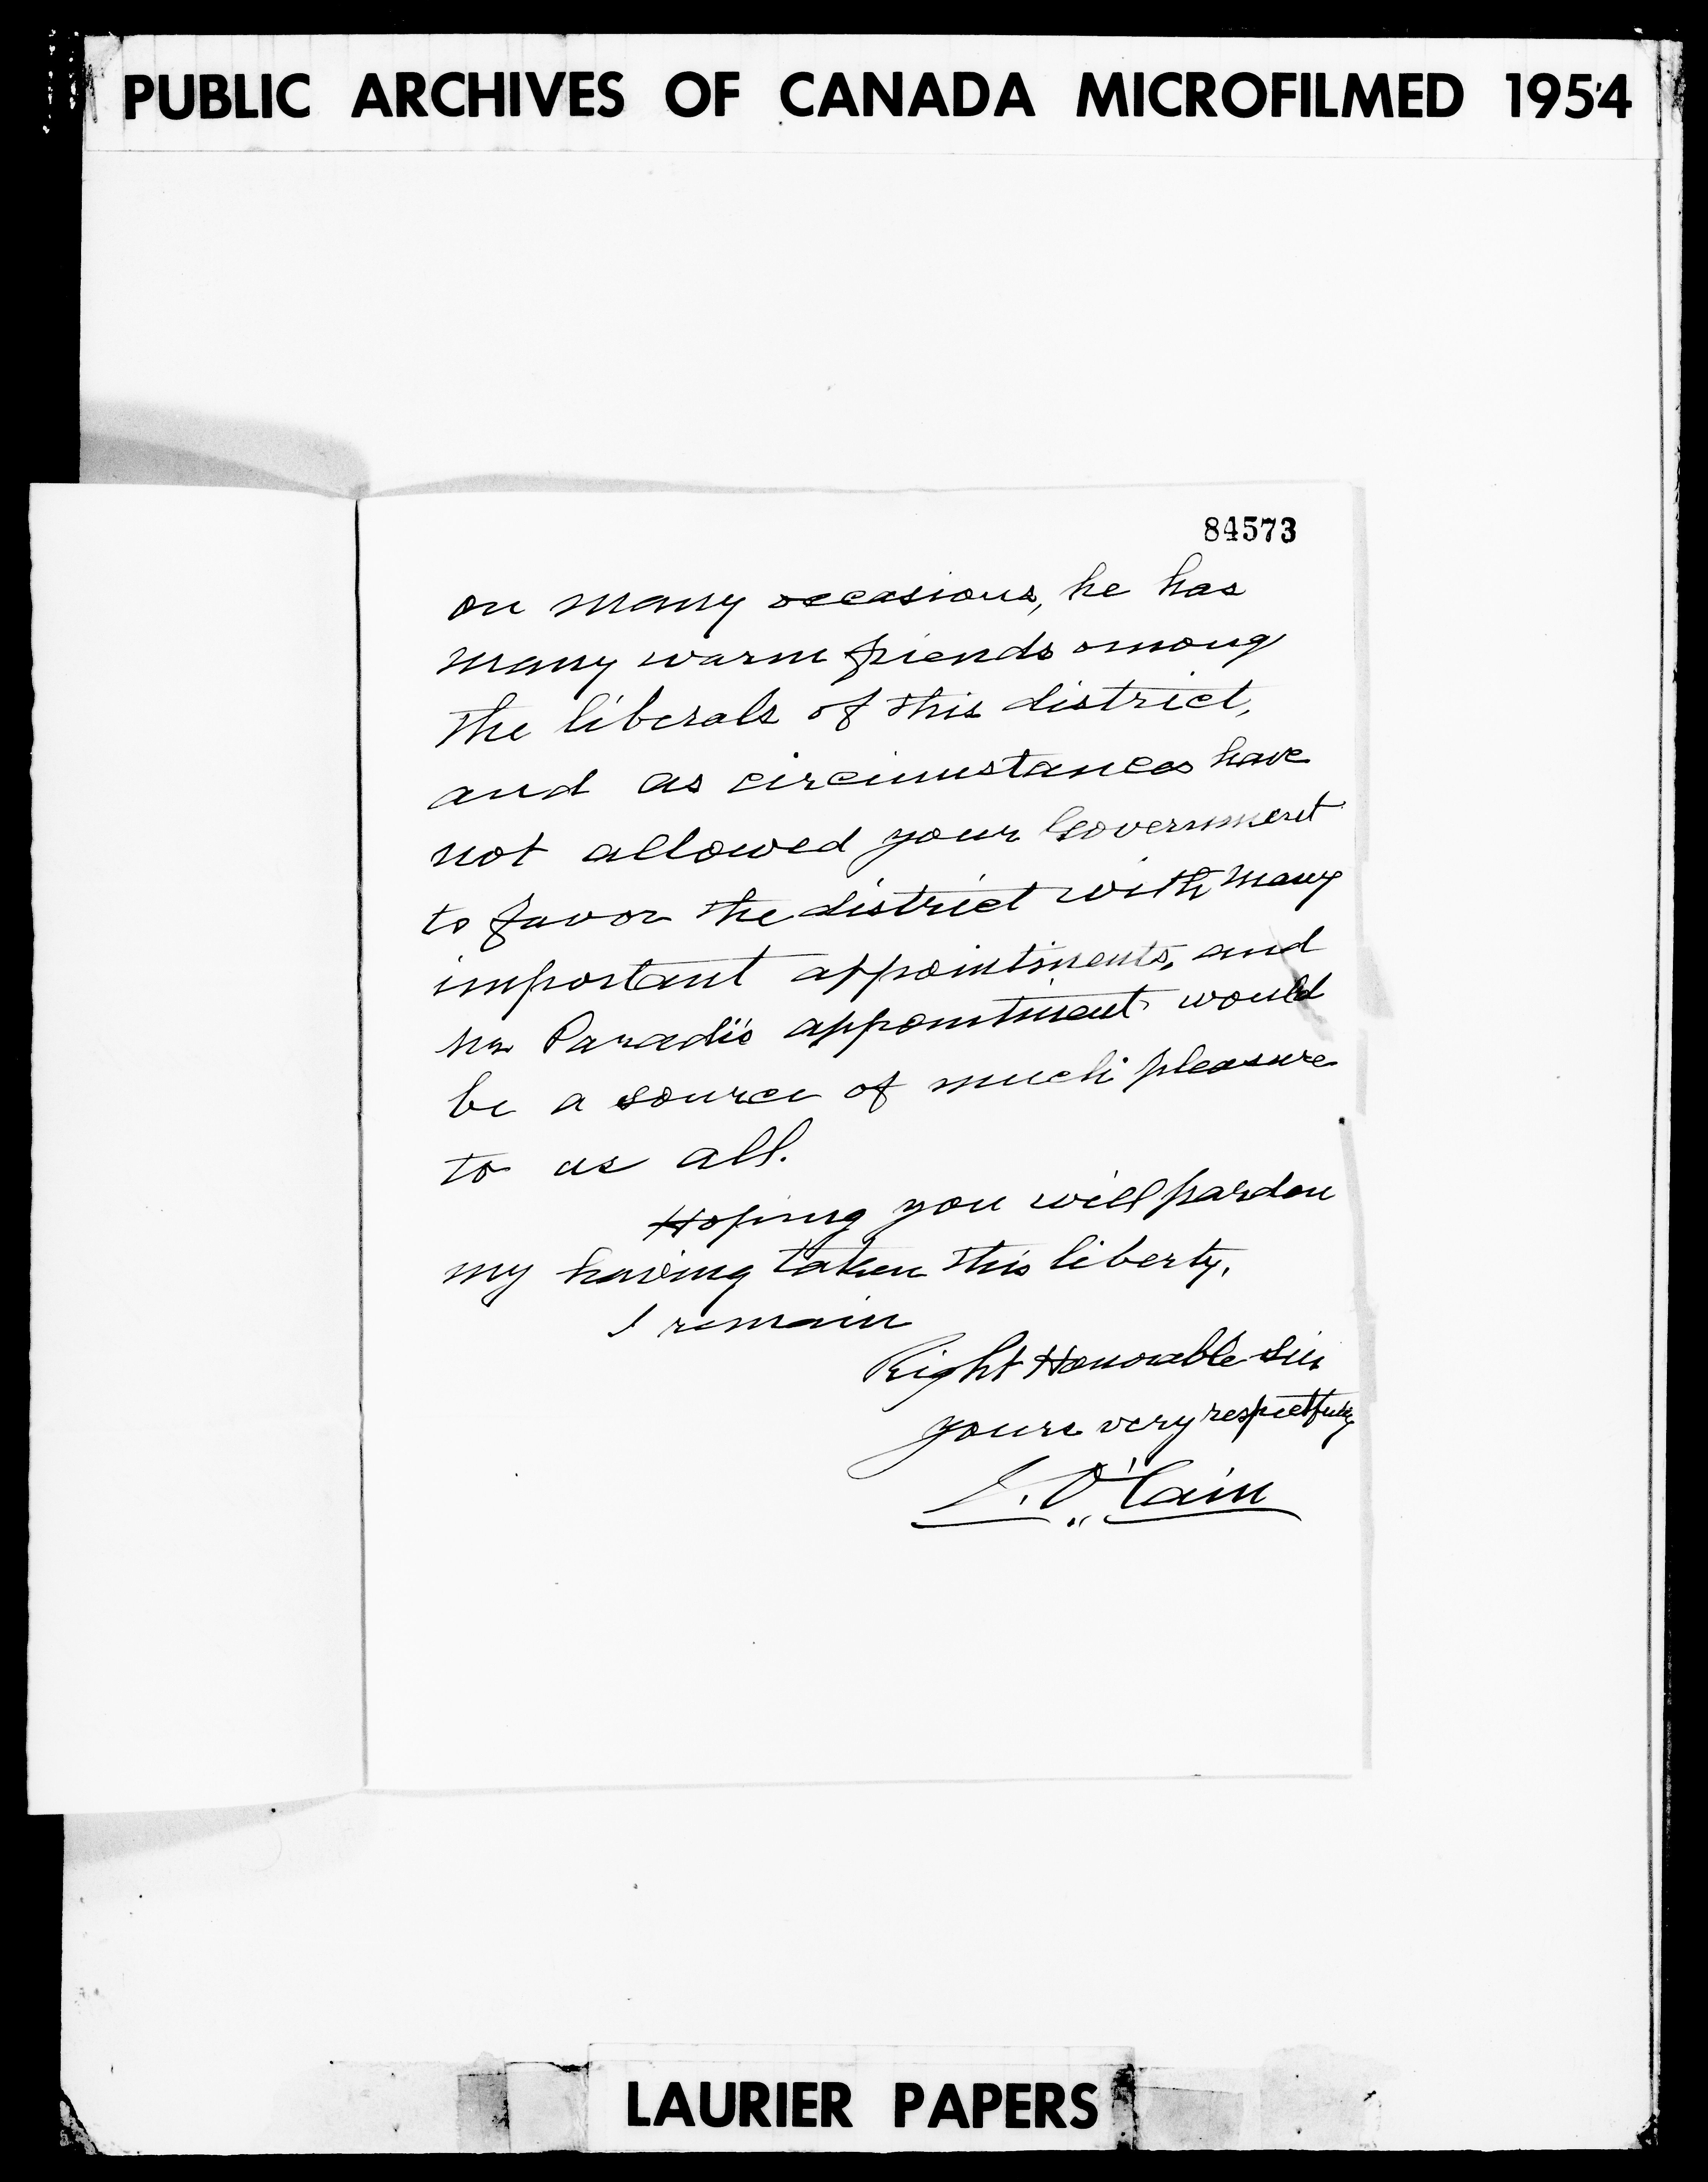 PUBLIC ARCHIVES OF CANADA MICROFILMED 1954
84573
on many occasions, he has
many warm friends among
the liberals of this district,
and as circumstances have
not allowed your Government
to favor the district with many
important appointments, and
Mr Paradis appointment would
be a source of much pleasure
to us all.
Hoping you will pardon
my having taken this liberty,
I remain
Right Honorable Sir
yours very respectfully
J. O'Cain
LAURIER PAPERS